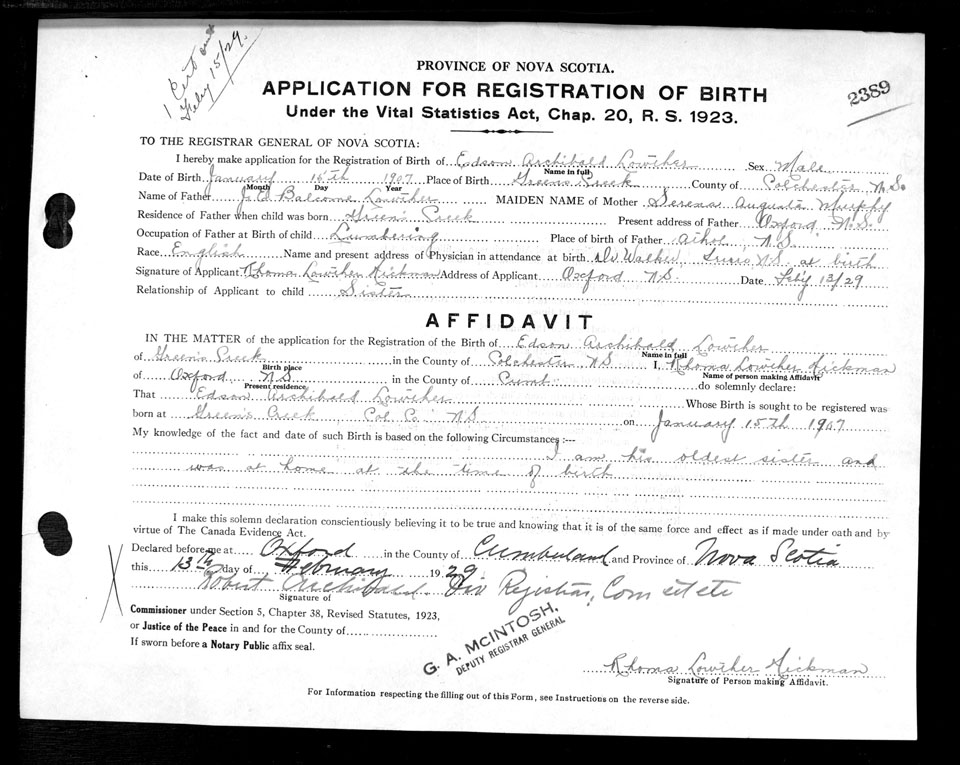 1 Cert out
Feby 15/29.
PROVINCE OF NOVA SCOTIA.
APPLICATION FOR REGISTRATION OF BIRTH
2389
Under the Vital Statistics Act, Chap. 20, R. S. 1923.
TO THE REGISTRAR GENERAL OF NOVA SCOTIA:
I hereby make application for the Registration of Birth of Edson Archibald Lowther Sex Male
Name in full
Date of Birth January 15th 1907 Place of Birth Greens Creek County of Colchester N.S.
Month Day Year
Name of Father J. E. Balcome Lowther MAIDEN NAME of Mother Serena Augusta Murphy
Residence of Father when child was born Green's Creek Present address of Father Oxford, N.S.
Occupation of Father at Birth of child Lumbering Place of birth of Father Athol, N.S.
Race English Name and present address of Physician in attendance at birth Dr Walker, Truro N.S. at birth
Signature of Applicant Rhoma Lowther Hickman Address of Applicant Oxford N.S. Date Feb'y 13/29
Relationship of Applicant to child Sister
AFFIDAVIT
IN THE MATTER of the application for the Registration of the Birth of Edson Archibald Lowther
Name in full
of Green's Creek in the County of Colchester N.S. I, Rhoma Lowther Hickman
Birth place Name of person making Affidavit
of Oxford, N.S. in the County of Cumb. do solemnly declare:
Present residence
That Edson Archibald Lowther Whose Birth is sought to be registered was
born at Green's Creek Col. Co. N.S. on January 15th 1907
My knowledge of the fact and date of such Birth is based on the following Circumstances:—
I am his oldest sister and
was at home at the time of birth
I make this solemn declaration conscientiously believing it to be true and knowing that it is of the same force and effect as if made under oath and by
virtue of The Canada Evidence Act.
Declared before me at Oxford in the County of Cumberland and Province of Nova Scotia
this 13th day of February 1929
Robert Archibald Div Registrar, Com
Signature of
Commissioner under Section 5, Chapter 38, Revised Statutes, 1923,
or Justice of the Peace in and for the County of
If sworn before a Notary Public affix seal.
G. A. MCINTOSH,
DEPUTY REGISTRAR GENERAL
Rhoma Lowther Hickman
Signature of Person making Affidavit.
For Information respecting the filling out of this Form, see Instructions on the reverse side.